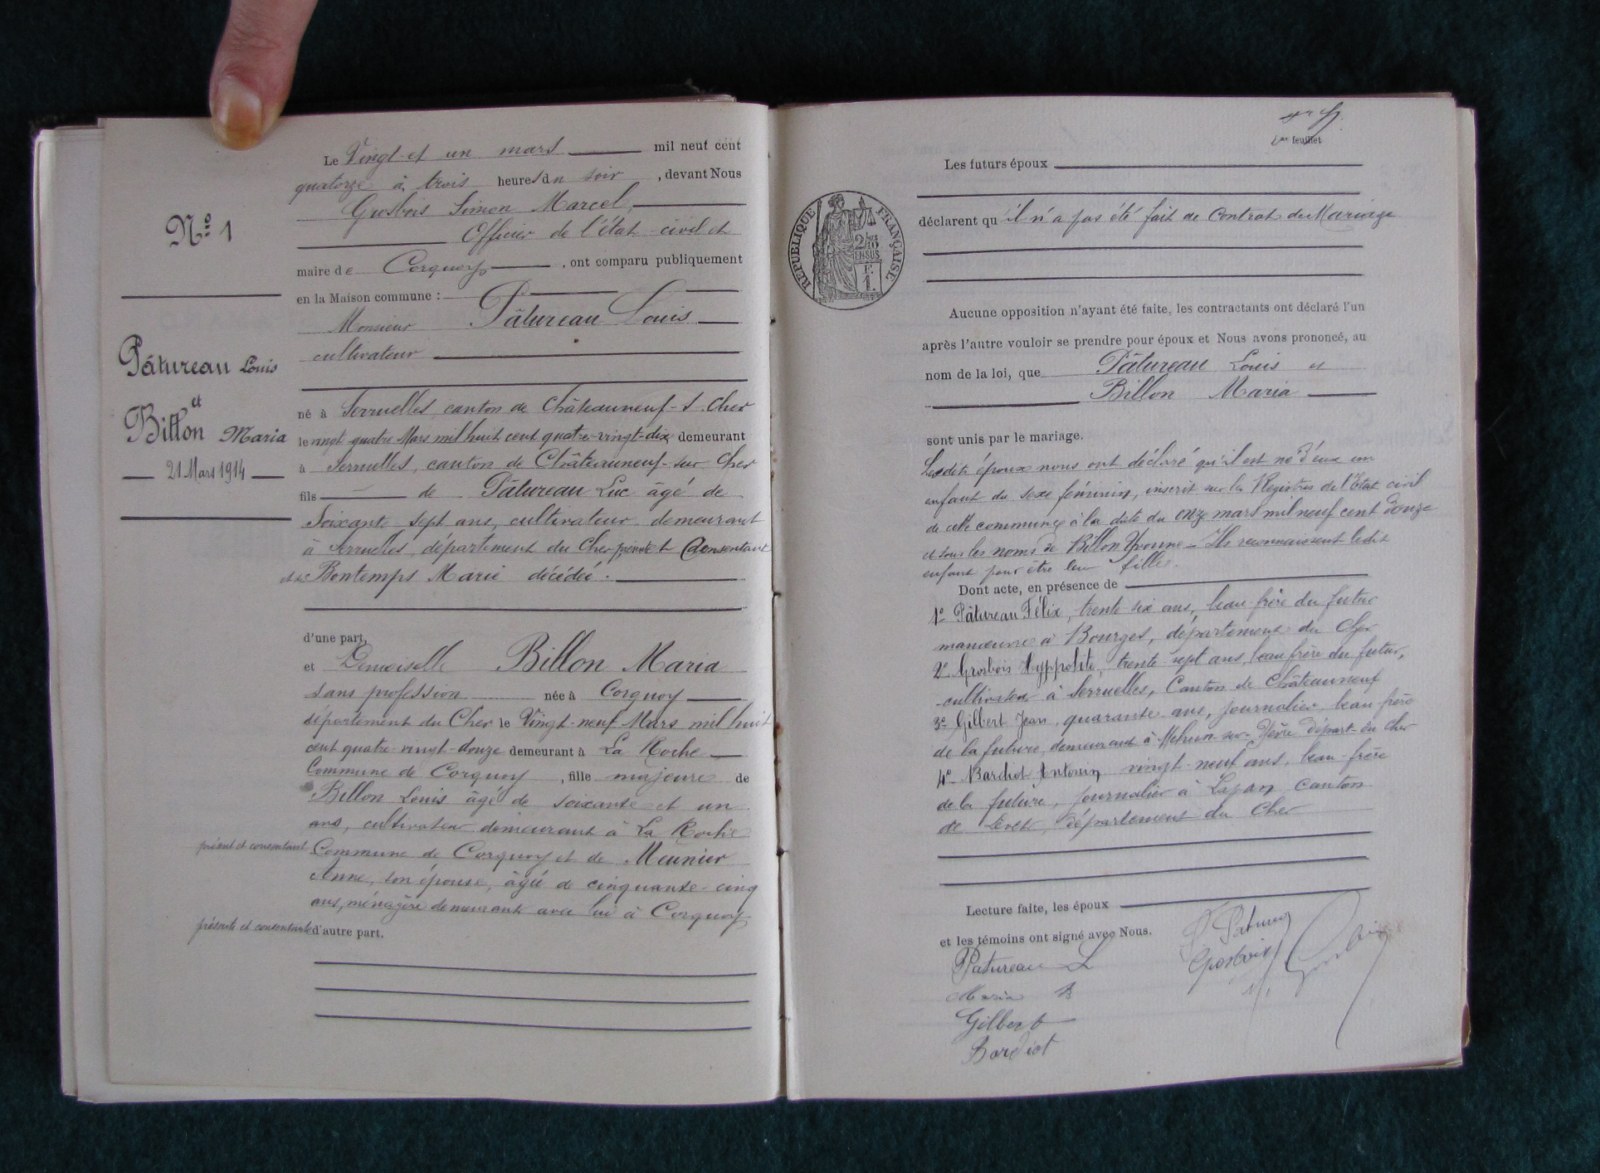 Nº 1
Pâtureau Louis
et
Billon Maria
21 Mars 1914
Le Vingt et un mars mil neuf cent
quatorze à trois heures du soir, devant Nous
Grosbois Simon Marcel,
Officier de l'état civil et
maire de Corquoy, ont comparu publiquement
en la Maison commune :
Monsieur Pâtureau Louis
cultivateur
né à Serruelles canton de Châteauneuf-s. Cher
le vingt quatre Mars mil huit cent quatre-vingt-dix demeurant
à Serruelles, canton de Châteauneuf-sur Cher
fils de Pâtureau Luc âgé de
Soixante sept ans, cultivateur demeurant
à Serruelles, département du Cher présent & Consentant
et de Bontemps Marie décédée.
d'une part,
et Demoiselle Billon Maria
sans profession née à Corquoy
département du Cher le Vingt-neuf Mars mil huit
cent quatre-vingt-douze demeurant à La Roche
Commune de Corquoy, fille majeure de
Billon Louis âgé de soixante et un
ans, cultivateur demeurant à La Roche
présent et consentant Commune de Corquoy et de Meunier
Anne, son épouse, âgée de cinquante-cinq
ans, ménagère demeurant avec lui à Corquoy
présente et consentante d'autre part.
feuillet
Les futurs époux
déclarent qu'il n'a pas été fait de Contrat de Mariage
RÉPUBLIQUE FRANÇAISE
Aucune opposition n'ayant été faite, les contractants ont déclaré l'un
après l'autre vouloir se prendre pour époux et Nous avons prononcé, au
nom de la loi, que Pâtureau Louis et
Billon Maria
sont unis par le mariage.
Lesdits époux nous ont déclaré qu'il est né d'eux un
enfant du sexe féminin, inscrit sur les Registres de l'Etat civil
de cette commune à la date du onze mars mil neuf cent douze
et sous les noms de Billon Yvonne - Ils reconnaissent ledit
enfant pour être leur fille.
Dont acte, en présence de
1º Pâtureau Félix, trente six ans, beau frère du futur
manœuvre à Bourges, département du Cher
2º Grosbois Hyppolite, trente sept ans, beau frère du futur,
cultivateur à Serruelles, Canton de Châteauneuf
3º Gilbert Jean quarante ans, journalier beau frère
de la future, demeurant à Mehun-sur-Yèvre départ. du Cher
4º Bardiot Antonin vingt neuf ans, beau-frère
de la future, journalier à Lapan canton
de Levet, département du Cher
Lecture faite, les époux
et les témoins ont signé avec Nous.
Patureau L
F Patureau
Grosbois
Maria B
Gilbert
Bardiot